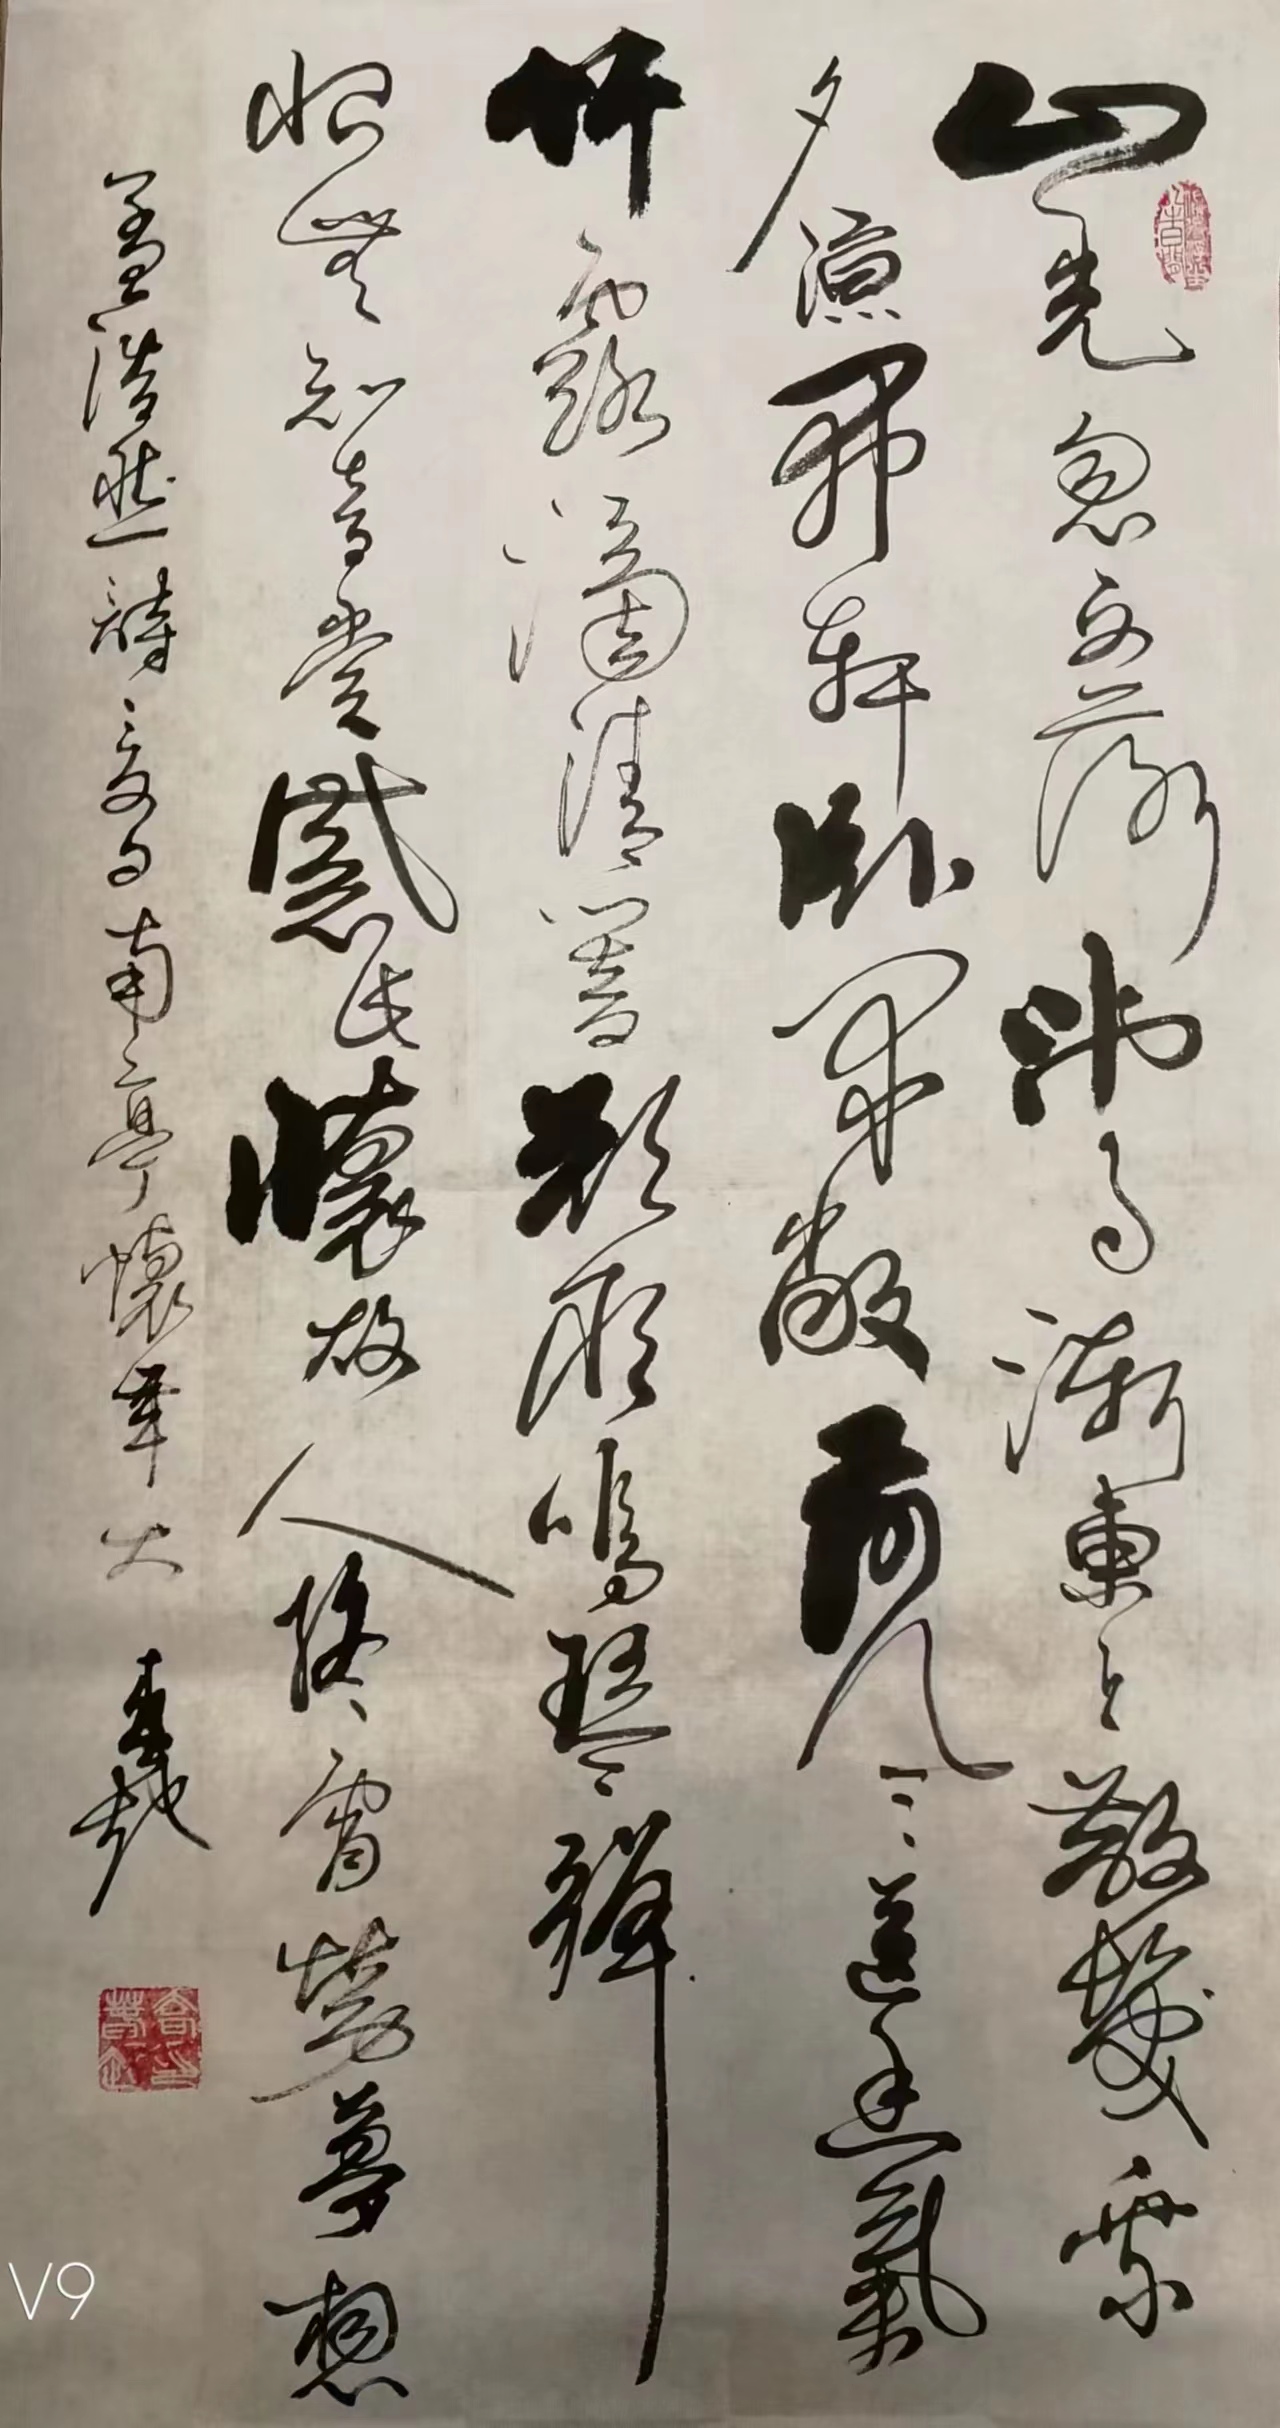 山光忽西落池月漸東上散髮乘
夕涼開軒卧閑敞荷風送香氣
竹露滴清響欲取鳴琴彈
恨無知音賞感此懷故人終宵勞夢想
孟浩然詩夏日南亭懷辛大
V9